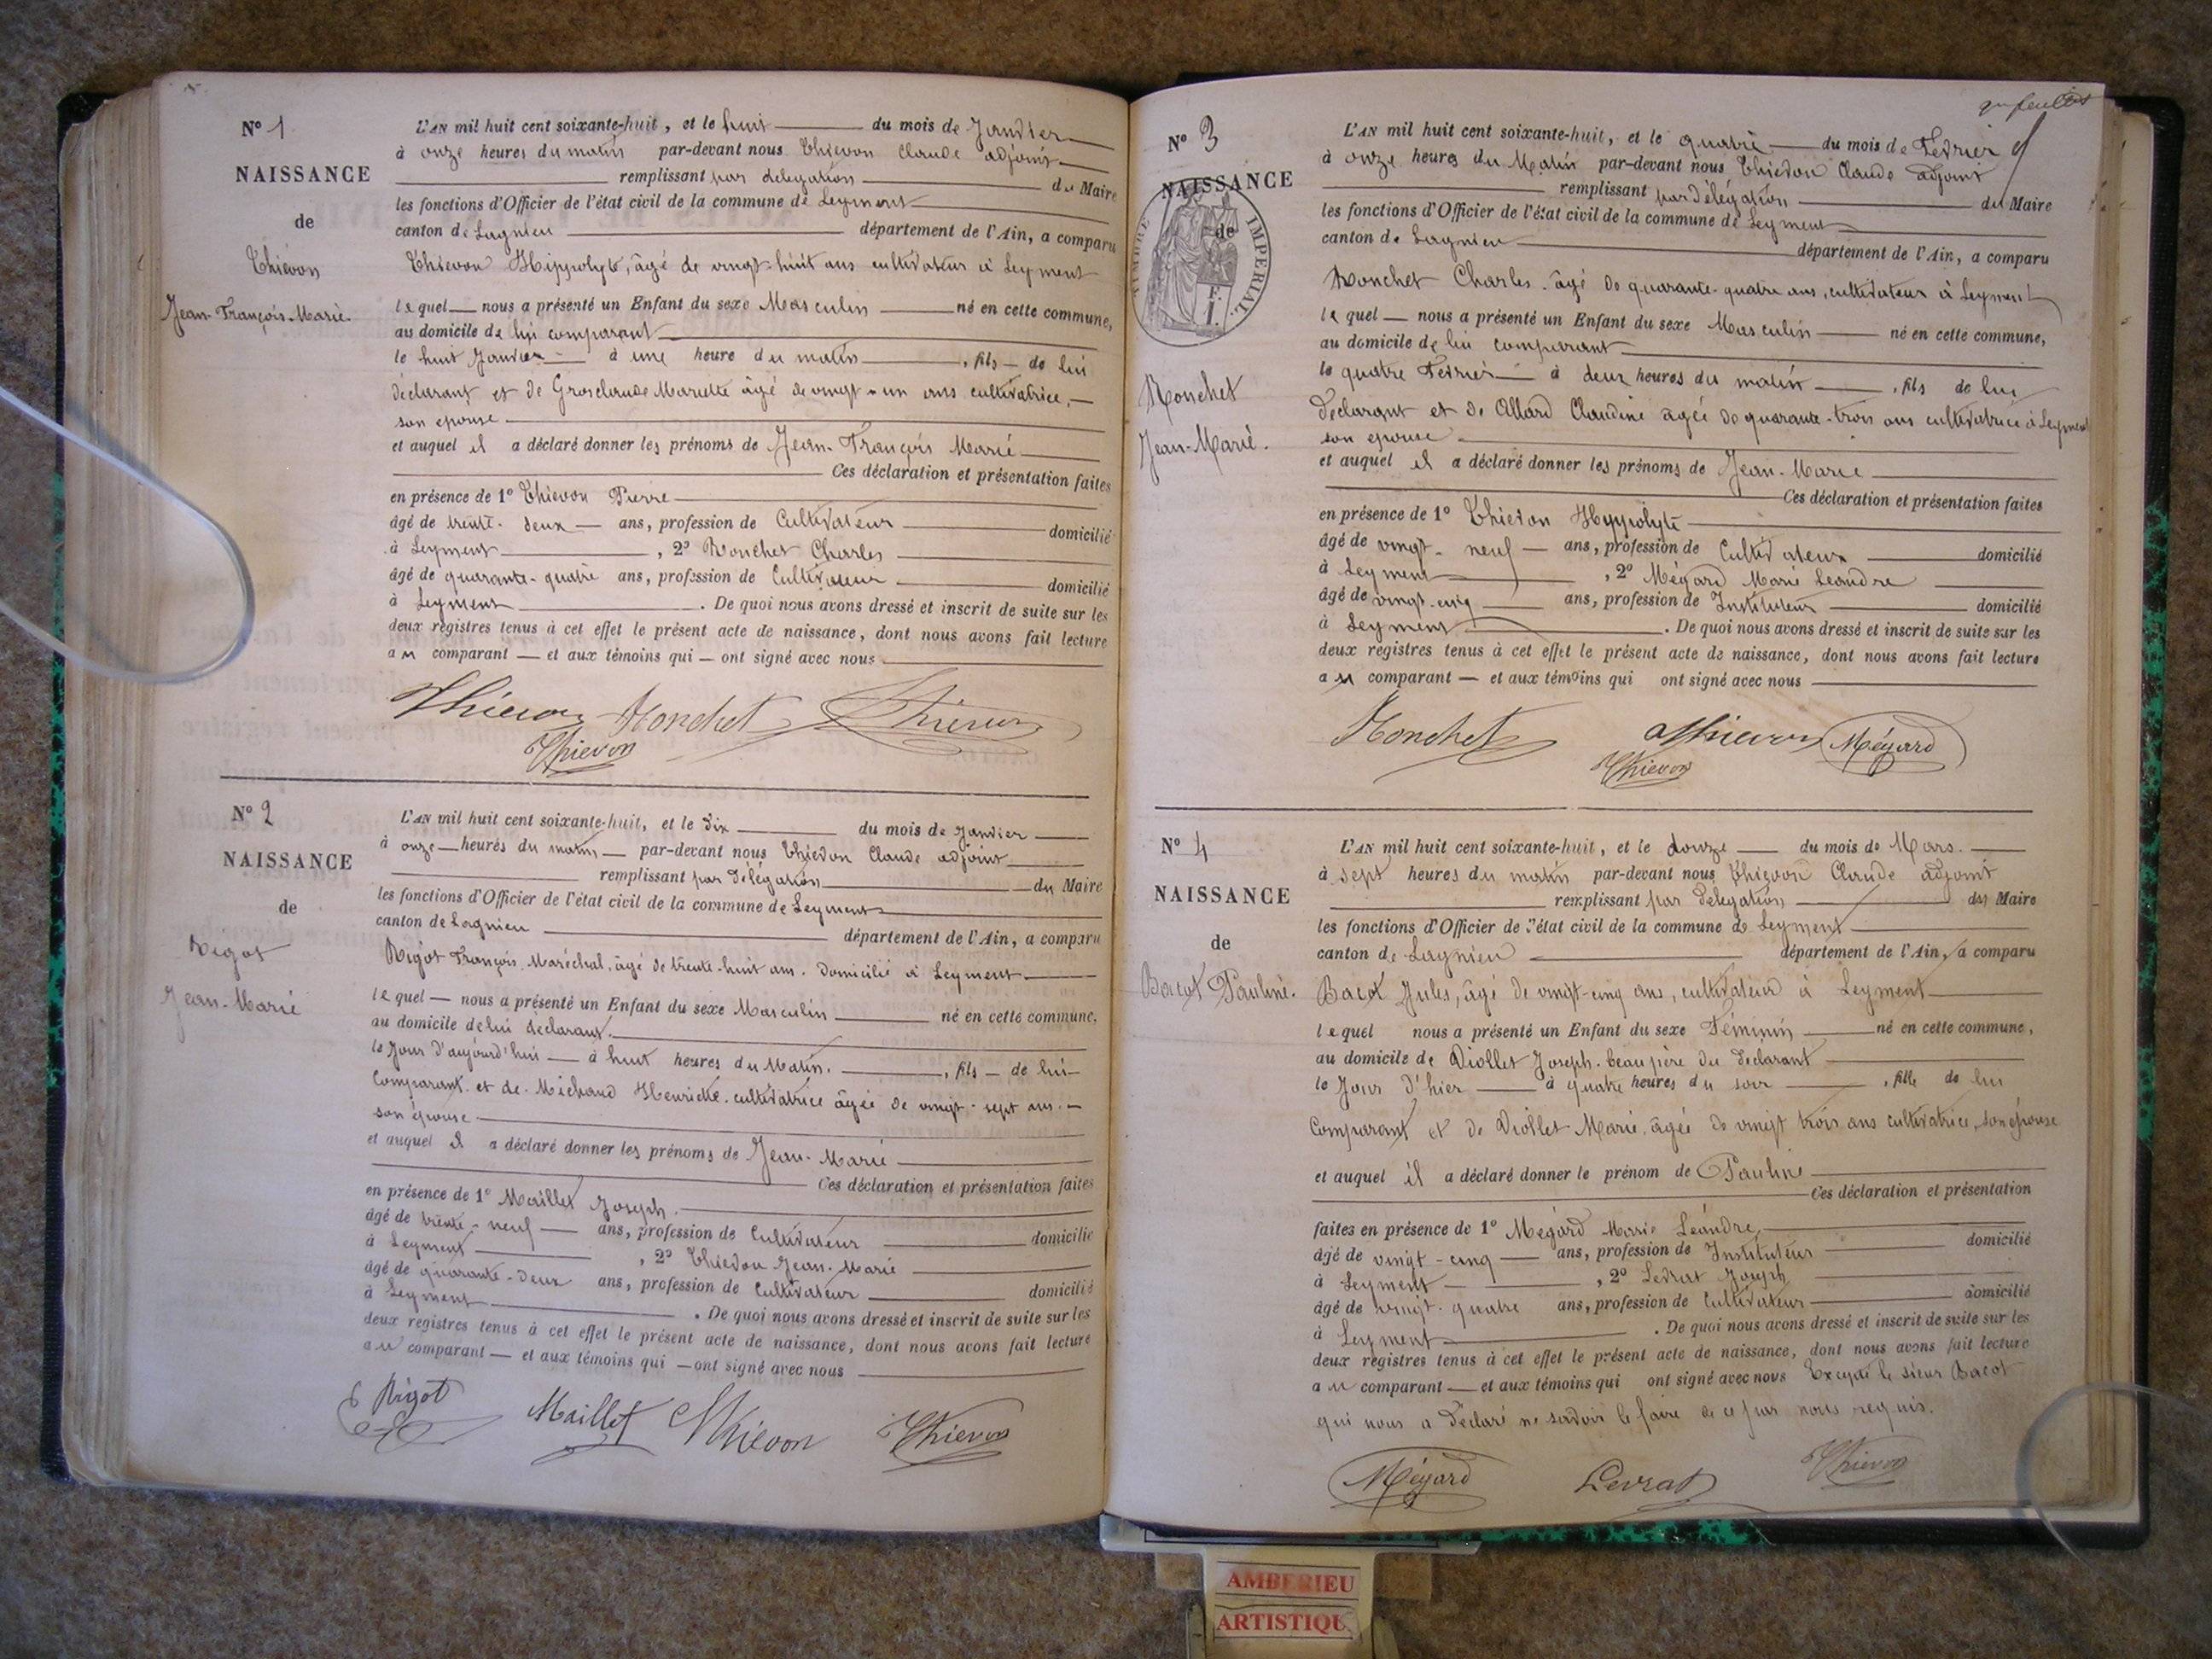 Nº 1
NAISSANCE
de
Thiévon
Jean-François-Marie.
L'AN mil huit cent soixante-huit, et le huit du mois de Janvier
à onze heures du matin par-devant nous Thievon Claude adjoint
remplissant par délégation du Maire
les fonctions d'Officier de l'état civil de la commune de Leyment
canton de Lagnieu département de l'Ain, a comparu
Thievon Hippolyte, âgé de vingt-huit ans cultivateur à Leyment
lequel nous a présenté un Enfant du sexe Masculin né en cette commune,
au domicile de lui comparant
le huit Janvier à une heure du matin, fils de lui
déclarant et de Grosclaude Mariette âgé de vingt-un ans cultivatrice,
son epouse
et auquel il a déclaré donner les prénoms de Jean-François Marie
Ces déclaration et présentation faites
en présence de 1º Thievon Pierre
âgé de trente-deux ans, profession de Cultivateur domicilié
à Leyment, 2º Ronchet Charles
âgé de quarante-quatre ans, profession de Cultivateur domicilié
à Leyment. De quoi nous avons dressé et inscrit de suite sur les
deux registres tenus à cet effet le présent acte de naissance, dont nous avons fait lecture
au comparant et aux témoins qui ont signé avec nous
Thievon Ronchet Thievon
Thievon
Nº 2
NAISSANCE
de
Rigot
Jean-Marie
L'AN mil huit cent soixante-huit, et le dix du mois de Janvier
à onze heures du matin par-devant nous Thievon Claude adjoint
remplissant par délégation du Maire
les fonctions d'Officier de l'état civil de la commune de Leyment
canton de Lagnieu département de l'Ain, a comparu
Rigot François, Maréchal, âgé de trente-huit ans. domicilié à Leyment
lequel nous a présenté un Enfant du sexe Masculin né en cette commune,
au domicile de lui déclarant.
le Jour d'aujourd'hui à huit heures du Matin., fils de lui
Comparant et de Michaud Henriette, cultivatrice âgée de vingt-sept ans.
son épouse
et auquel il a déclaré donner les prénoms de Jean-Marie
Ces déclaration et présentation faites
en présence de 1º Maillet Joseph.
âgé de trente-neuf ans, profession de Cultivateur domicilié
à Leyment, 2º Thievon Jean-Marie
âgé de quarante-deux ans, profession de Cultivateur domicilié
à Leyment. De quoi nous avons dressé et inscrit de suite sur les
deux registres tenus à cet effet le présent acte de naissance, dont nous avons fait lecture
au comparant et aux témoins qui ont signé avec nous
Rigot Maillet Thievon Thievon
Nº 3
NAISSANCE
de
TIMBRE IMPERIAL
Ronchet
Jean-Marie.
L'AN mil huit cent soixante-huit, et le quatre du mois de Février
à onze heures du Matin par-devant nous Thievon Claude adjoint
remplissant par délégation du Maire
les fonctions d'Officier de l'état civil de la commune de Leyment
canton de Lagnieu département de l'Ain, a comparu
Ronchet Charles. âgé de quarante-quatre ans, cultivateur à Leyment
lequel nous a présenté un Enfant du sexe Masculin né en cette commune,
au domicile de lui comparant
le quatre Fevrier à deux heures du matin, fils de lui
declarant et de Allard Claudine agée de quarante-trois ans cultivatrice à Leyment
son epouse
et auquel il a déclaré donner les prénoms de Jean-Marie
Ces déclaration et présentation faites
en présence de 1º Thievon Hyppolyte
âgé de vingt-neuf ans, profession de Cultivateur domicilié
à Leyment, 2º Mégard Marie Leandre
âgé de vingt-cinq ans, profession de Instituteur domicilié
à Leyment. De quoi nous avons dressé et inscrit de suite sur les
deux registres tenus à cet effet le présent acte de naissance, dont nous avons fait lecture
au comparant et aux témoins qui ont signé avec nous
Ronchet Thievon Mégard
Thievon
Nº 4
NAISSANCE
de
Bacot Pauline.
L'AN mil huit cent soixante-huit, et le douze du mois de Mars.
à sept heures du matin par-devant nous Thievon Claude adjoint
remplissant par délégation du Maire
les fonctions d'Officier de l'état civil de la commune de Leyment
canton de Lagnieu département de l'Ain, a comparu
Bacot Jules, âgé de vingt-cinq ans, cultivateur à Leyment
lequel nous a présenté un Enfant du sexe Féminin né en cette commune,
au domicile de Diollet Joseph. beau père du déclarant
le Jour d'hier à quatre heures du soir, fille de lui
Comparant et de Diollet Marie, agée de vingt trois ans cultivatrice, son épouse
et auquel il a déclaré donner le prénom de Pauline
Ces déclaration et présentation
faites en présence de 1º Mégard Marie Léandre,
âgé de vingt-cinq ans, profession de Instituteur domicilié
à Leyment, 2º Levrat Joseph
âgé de vingt-quatre ans, profession de Cultivateur domicilié
à Leyment. De quoi nous avons dressé et inscrit de suite sur les
deux registres tenus à cet effet le présent acte de naissance, dont nous avons fait lecture
au comparant et aux témoins qui ont signé avec nous Excepté le sieur Bacot
qui nous a déclaré ne savoir le faire de ce par nous requis.
Mégard Levrat Thievon
AMBERIEU
ARTISTIQU